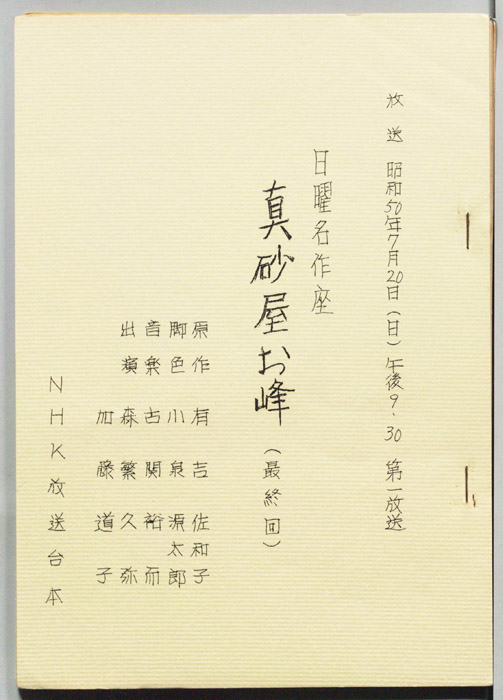 放送 昭和50年7月20日(日)午後9.30 第一放送
日曜名作座
真砂屋お峰(最終回)
原作 有吉佐和子
脚色 小泉源太郎
音楽 古関裕而
出演 森繁久弥
加藤道子
NHK放送台本